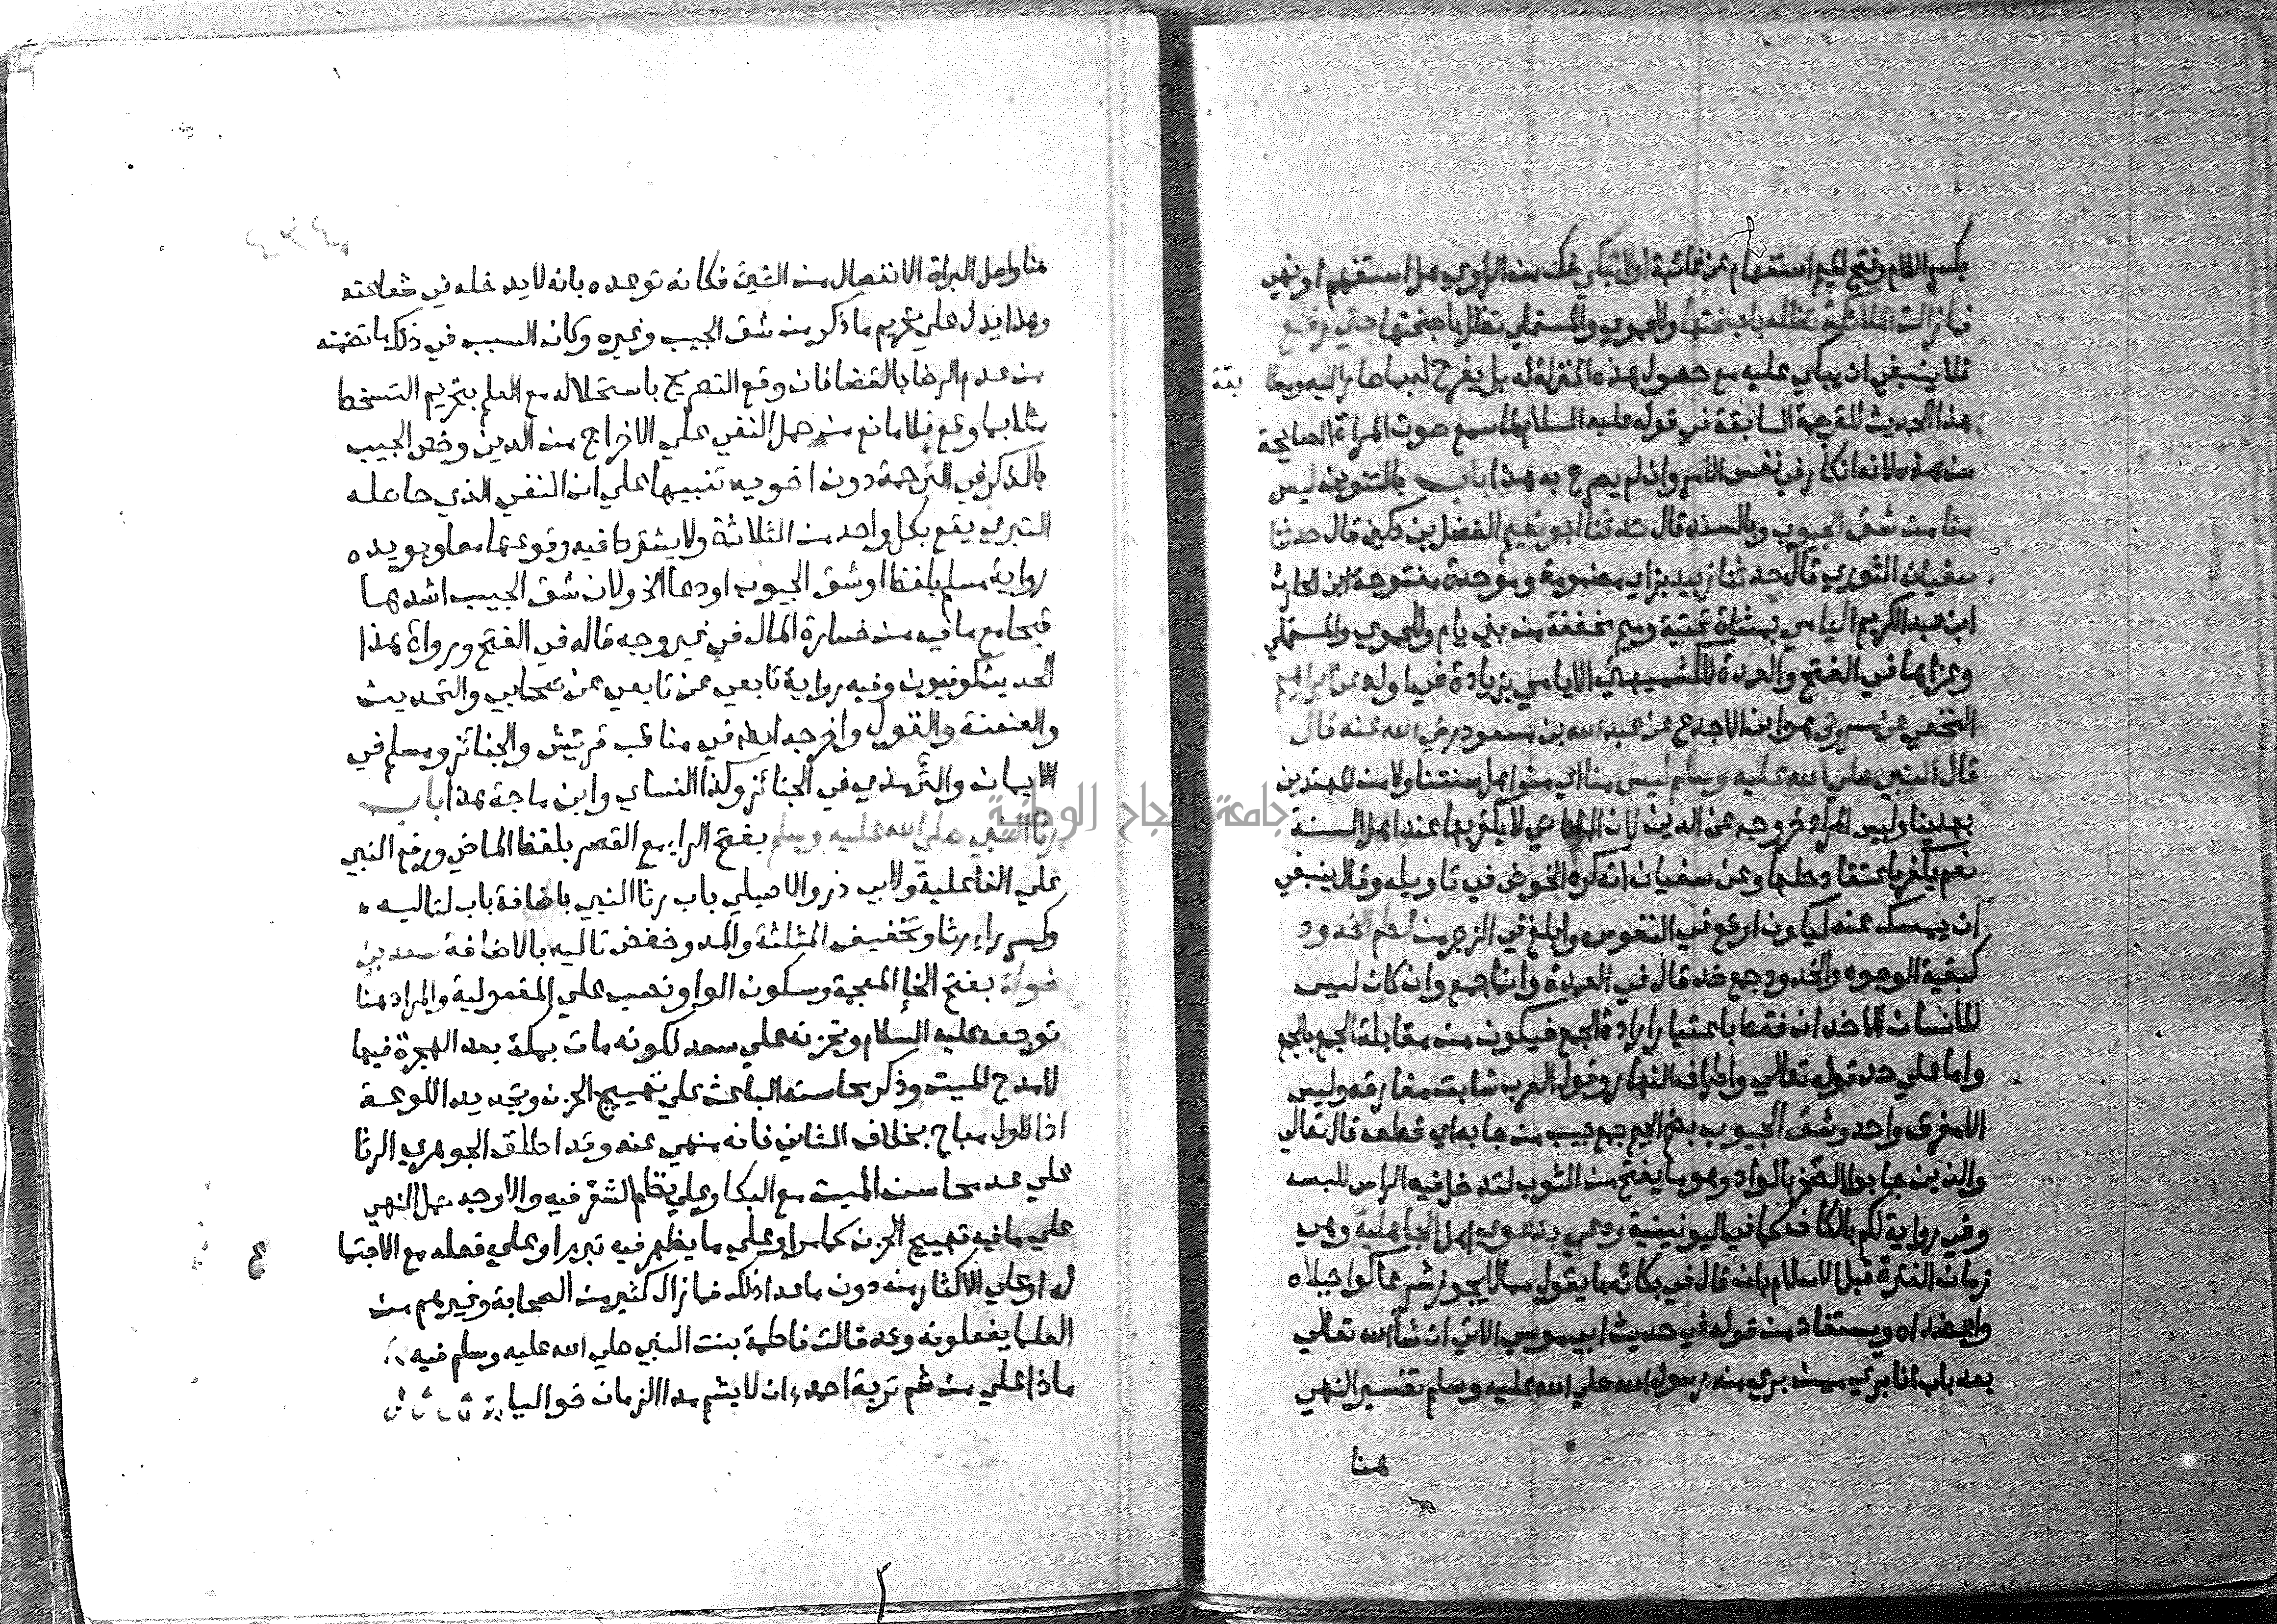 بكسر اللام وفتح الميم استفهام عن غائبة اولا تبكي شك من الراوي هل استفهم او نهي
فما زالت الملائكة تظله باجنحتها وللحموي والمستملي تظل باجنحتها حتي رفع
فلا ينبغي ان يبكي عليه مع حصول هذه المنزلة له بل يفرح له بما صار اليه ومطا بقة
هذا الحديث للترجمة السابقة في قوله عليه السلام لما سمع صوت المراة الصايحة
من هذه لانه انكار في نفس الامر وان لم يصرح به هذا باب بالتنوين ليس
منا من شق الجيوب وبالسند قال حدثنا ابو نعيم الفضل بن دكين قال حدثنا
سفيان الثوري قال حدثنا زبيد بزاي مضمومة وموحدة مفتوحة ابن الحارث
ابن عبد الكريم اليامي بمثناة تحتية وميم مخففة من بني يام وللحموي والمستملي
وعزاها في الفتح والعمدة للكشميهني الايامي بزيادة في اوله عن ابراهيم
النخعي عن مسروق هو ابن الاجدع عن عبد الله بن مسعود رضي الله عنه قال
قال النبي صلي الله عليه وسلم ليس منا اي من اهل سنتنا ولا من المهتدين
بهدينا وليس المراد خروجه عن الدين لان المعاصي لا يكفر بها عند اهل السنة
نعم يكفر باعتقاد حلها وعن سفيان انه كره الخوض في تاويله وقال ينبغي
ان يمسك عنه ليكون اوقع في النفوس وابلغ في الزجر من لطم الخدود
كبقية الوجوه والخدود جمع خد قال في العمدة وانما جمع وان كان ليس
للانسان الا خدان فقط باعتبار ارادة الجمع فيكون من مقابلة الجمع بالجمع
واما علي حد قوله تعالي واطراف النهار وقول العرب شابت مفارقه وليس
الا مفرق واحد وشق الجيوب بضم الجيم جمع جيب من جابه اي قطعه قال تعالي
والذين جابوا الصخر بالواد وهو ما يفتح من الثوب ليدخل فيه الراس للبسه
وفي رواية لكم بالكاف كما في اليونينية ودعي بدعوي اهل الجاهلية وهي
زمان الفترة قبل الاسلام بان قال في بكائه ما يقول مما لا يجوز شرعا كواجبلاه
واعضداه ويستفاد من قوله في حديث ابي موسي الاتي ان شاء الله تعالي
بعد باب انا بري ممن بري منه رسول الله صلي الله عليه وسلم تفسير النهي
هنا
هنا واصل البراة الانفصال من الشيء فكانه توعده بانه لا يدخله في شفاعته
وهذا يدل علي تحريم ما ذكر من شق الجيب وغيره وكان السبب في ذلك ما تضمنه
من عدم الرضا بالقضا فان وقع التصريح باستحلاله مع العلم بتحريم التسخط
مثلا بما وقع فلا مانع من حمل النفي علي الاخراج من الدين وخص الجيب
بالذكر في الترجمة دون اخويه تنبيها علي ان النفي الذي حاصله
التبري يقع بكل واحد من الثلاثة ولا يشترط فيه وقوعها معا ويويده
رواية مسلم بلفظ او شق الجيوب او دعا الخ ولان شق الجيب اشدها
قبحا مع ما فيه من خسارة المال في غير وجه قاله في الفتح ورواة هذا
الحديث كوفيون وفيه رواية تابعي عن تابعي عن صحابي والتحديث
والعنعنة والقول واخرجه ايضا في مناقب قريش والجنائز ومسلم في
الايمان والترمذي في الجنائز وكذا النساي وابن ماجة هذا باب
رثا النبي صلي الله عليه وسلم بفتح الراء مع القصر بلفظ الماضي ورفع النبي
علي الفاعلية ولابي ذر والاصيلي باب رثا النبي باضافة باب لتاليه
وكسر راء رثا وتخفيف المثلثة والمد وخفض تاليه بالاضافة سعد بن
خولة بفتح الخاء المعجمة وسكون الواو ونصب علي المفعولية والمراد هنا
توجعه عليه السلام وتحزنه علي سعد لكونه مات بمكة بعد الهجرة فيها
لا مدح الميت وذكر محاسنه الباعث علي تهييج الحزن وتجديد اللوعة
اذ الاول مباح بخلاف الثاني فانه منهي عنه وقد اطلق الجوهري الرثا
علي عد محاسن الميت مع البكا وعلي نظم الشعر فيه والاوجه حمل النهي
علي ما فيه تهييج الحزن كما مر او علي ما يظهر فيه تبرم او علي فعله مع الاجتما
له او علي الاكثار منه دون ما عدا ذلك فما زال كثير من الصحابة وغيرهم من
العلما يفعلونه وقد قالت فاطمة بنت النبي صلي الله عليه وسلم فيه
ماذا علي من شم تربة احمد ان لا يشم مدا الزمان غواليا
ع
جامعة النجاح الوطنية